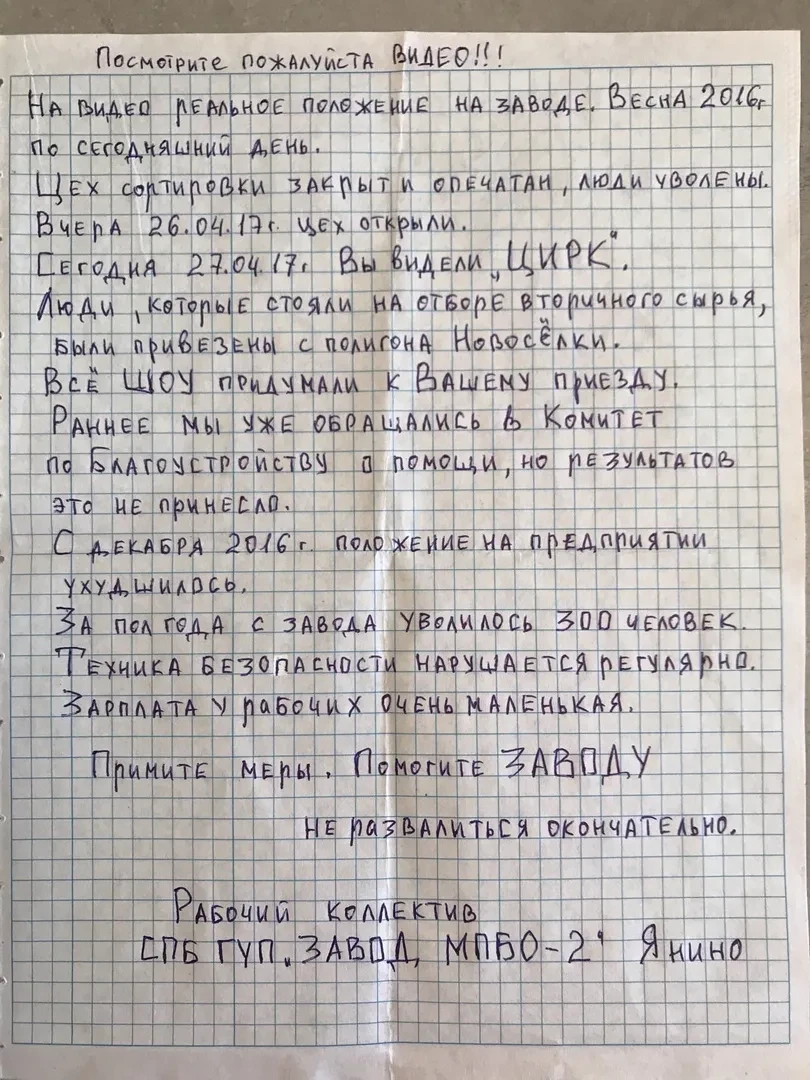 Посмотрите пожалуйста ВИДЕО!!!
На видео реальное положение на заводе. Весна 2016г
по сегодняшний день.
Цех сортировки закрыт и опечатан, люди уволены.
Вчера 26.04.17г. цех открыли.
Сегодня 27.04.17г Вы видели „ЦИРК".
Люди, которые стояли на отборе вторичного сырья,
были привезены с полигона Новосёлки.
Всё ШОУ придумали к Вашему приезду.
Раннее мы уже обращались в Комитет
по Благоустройству о помощи, но результатов
это не принесло.
С декабря 2016г. положение на предприятии
ухудшилось.
За пол года с завода уволилось 300 человек.
Техника безопасности нарушается регулярно.
Зарплата у рабочих очень маленькая.
Примите меры. Помогите ЗАВОДУ
не развалиться окончательно.
Рабочий коллектив
СПБ ГУП „ЗАВОД МПБО-2" Янино